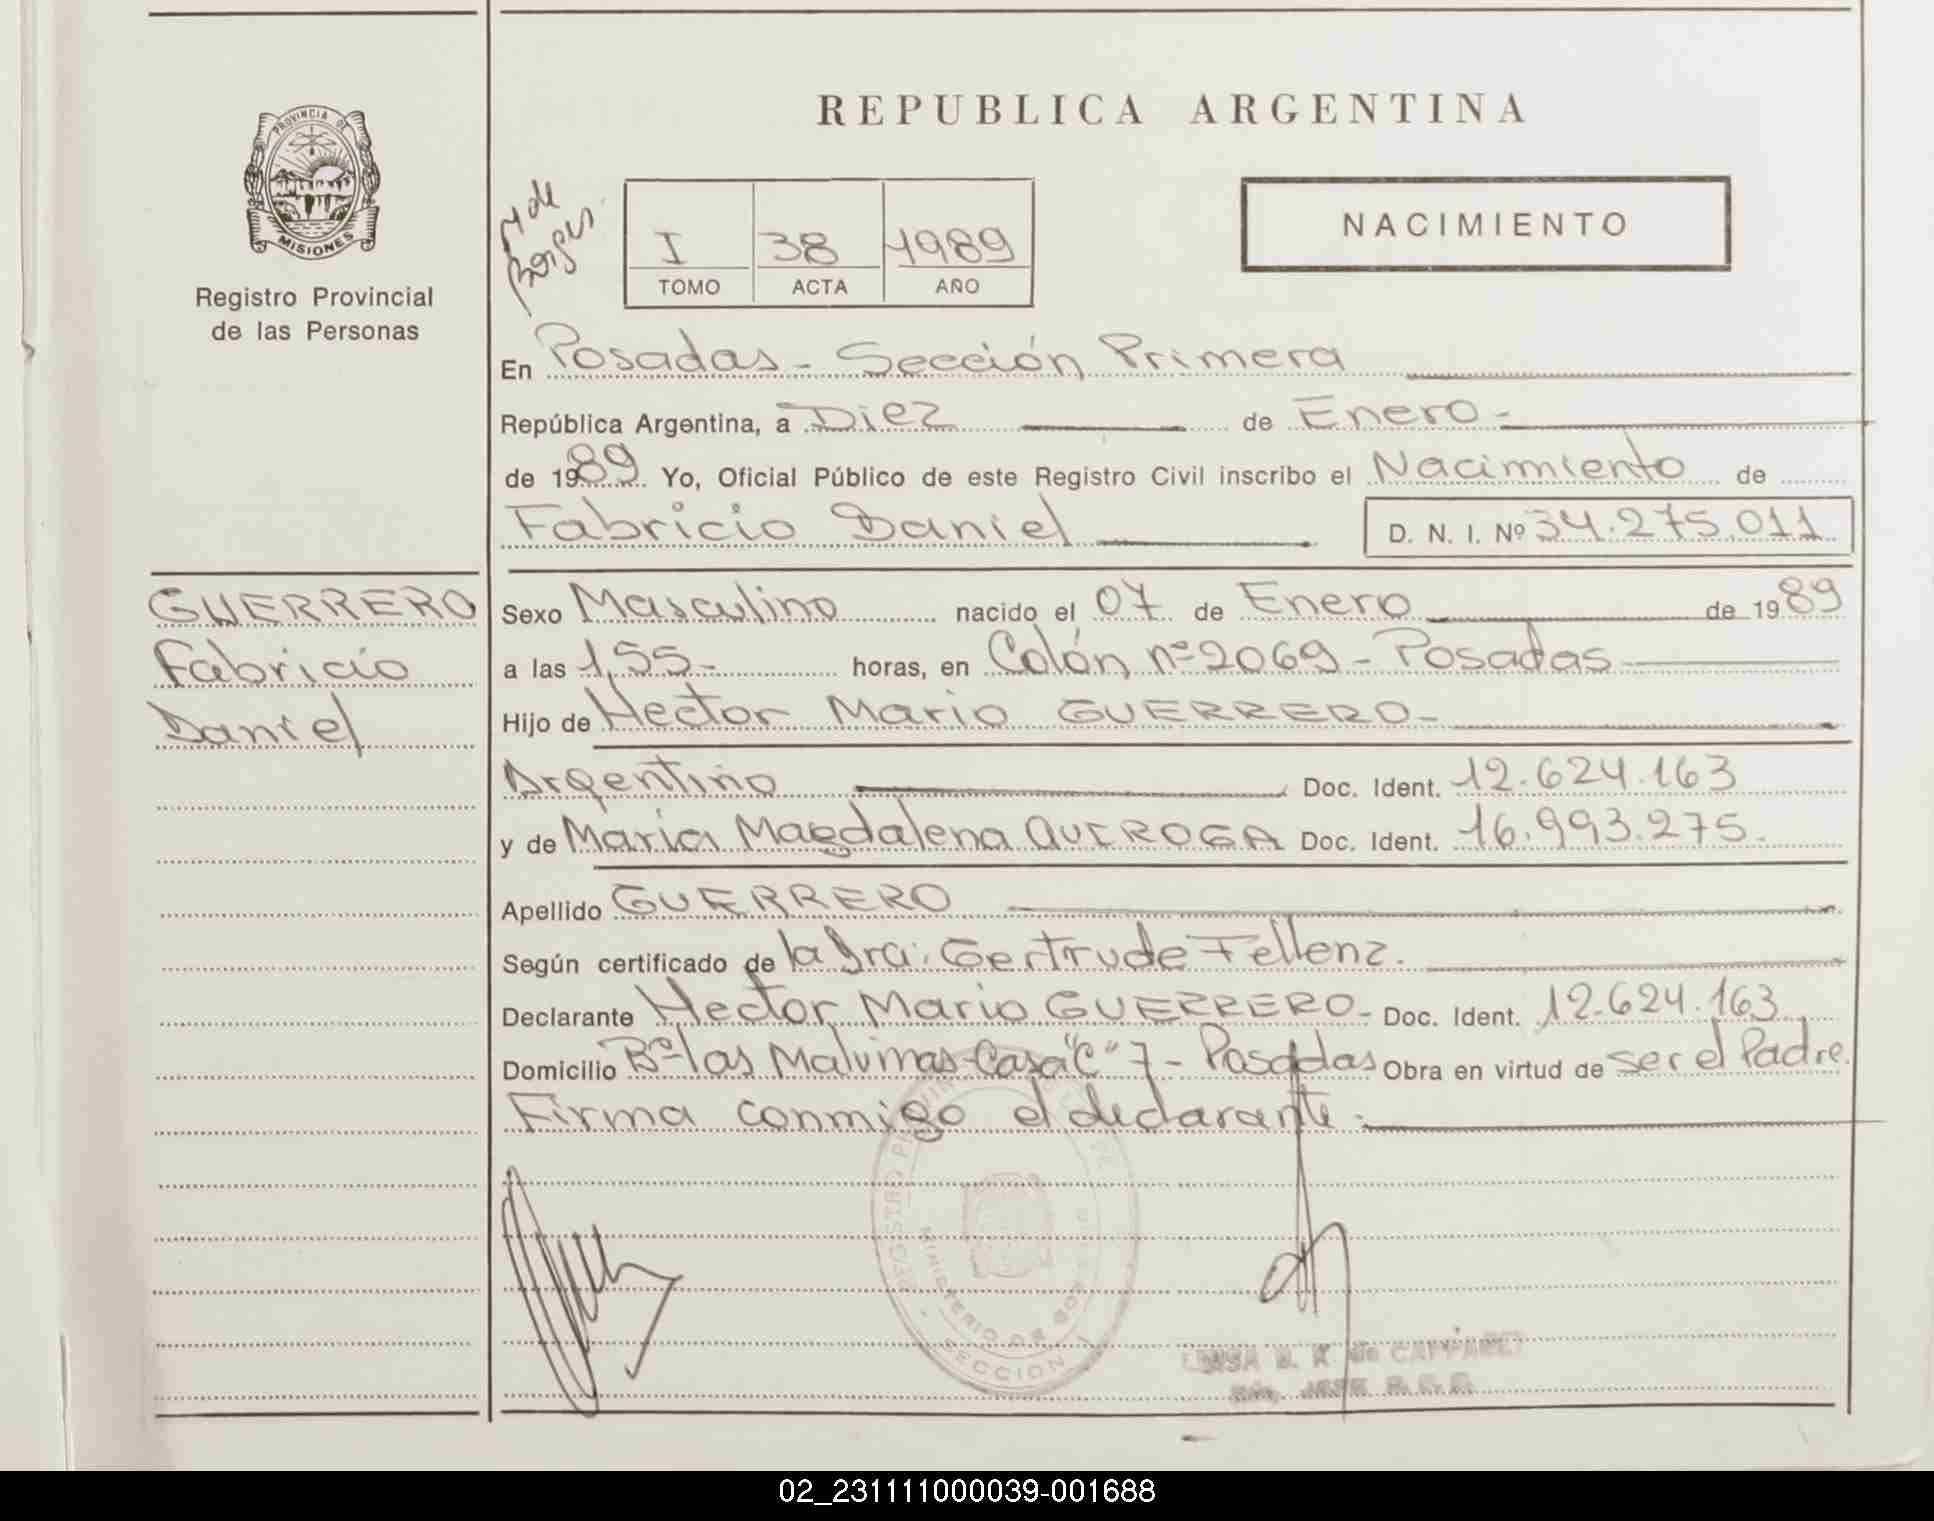 REPUBLICA ARGENTINA
PROVINCIA DE
MISIONES
Registro Provincial
de las Personas
I 38 1989
TOMO ACTA AÑO
NACIMIENTO
En Posadas - Sección Primera
República Argentina, a Diez de Enero -
de 1989. Yo, Oficial Público de este Registro Civil inscribo el Nacimiento de
Fabricio Daniel D. N. I. Nº 34.275.011
GUERRERO
Fabricio
Daniel
Sexo Masculino nacido el 07 de Enero de 1989
a las 1,55- horas, en Colón nº 2069 - Posadas
Hijo de Hector Mario GUERRERO-
Argentino Doc. Ident. 12.624.163
y de Maria Magdalena QUIROGA Doc. Ident. 16.993.275.
Apellido GUERRERO
Según certificado de la Dra: Gertrude Fellenz.
Declarante Hector Mario GUERRERO- Doc. Ident. 12.624.163
Domicilio Bº las Malvinas-Casa "C" 7 - Posadas Obra en virtud de ser el Padre.
Firma conmigo el declarante.
REGISTRO
MINISTERIO DE
SECCION
02_231111000039-001688